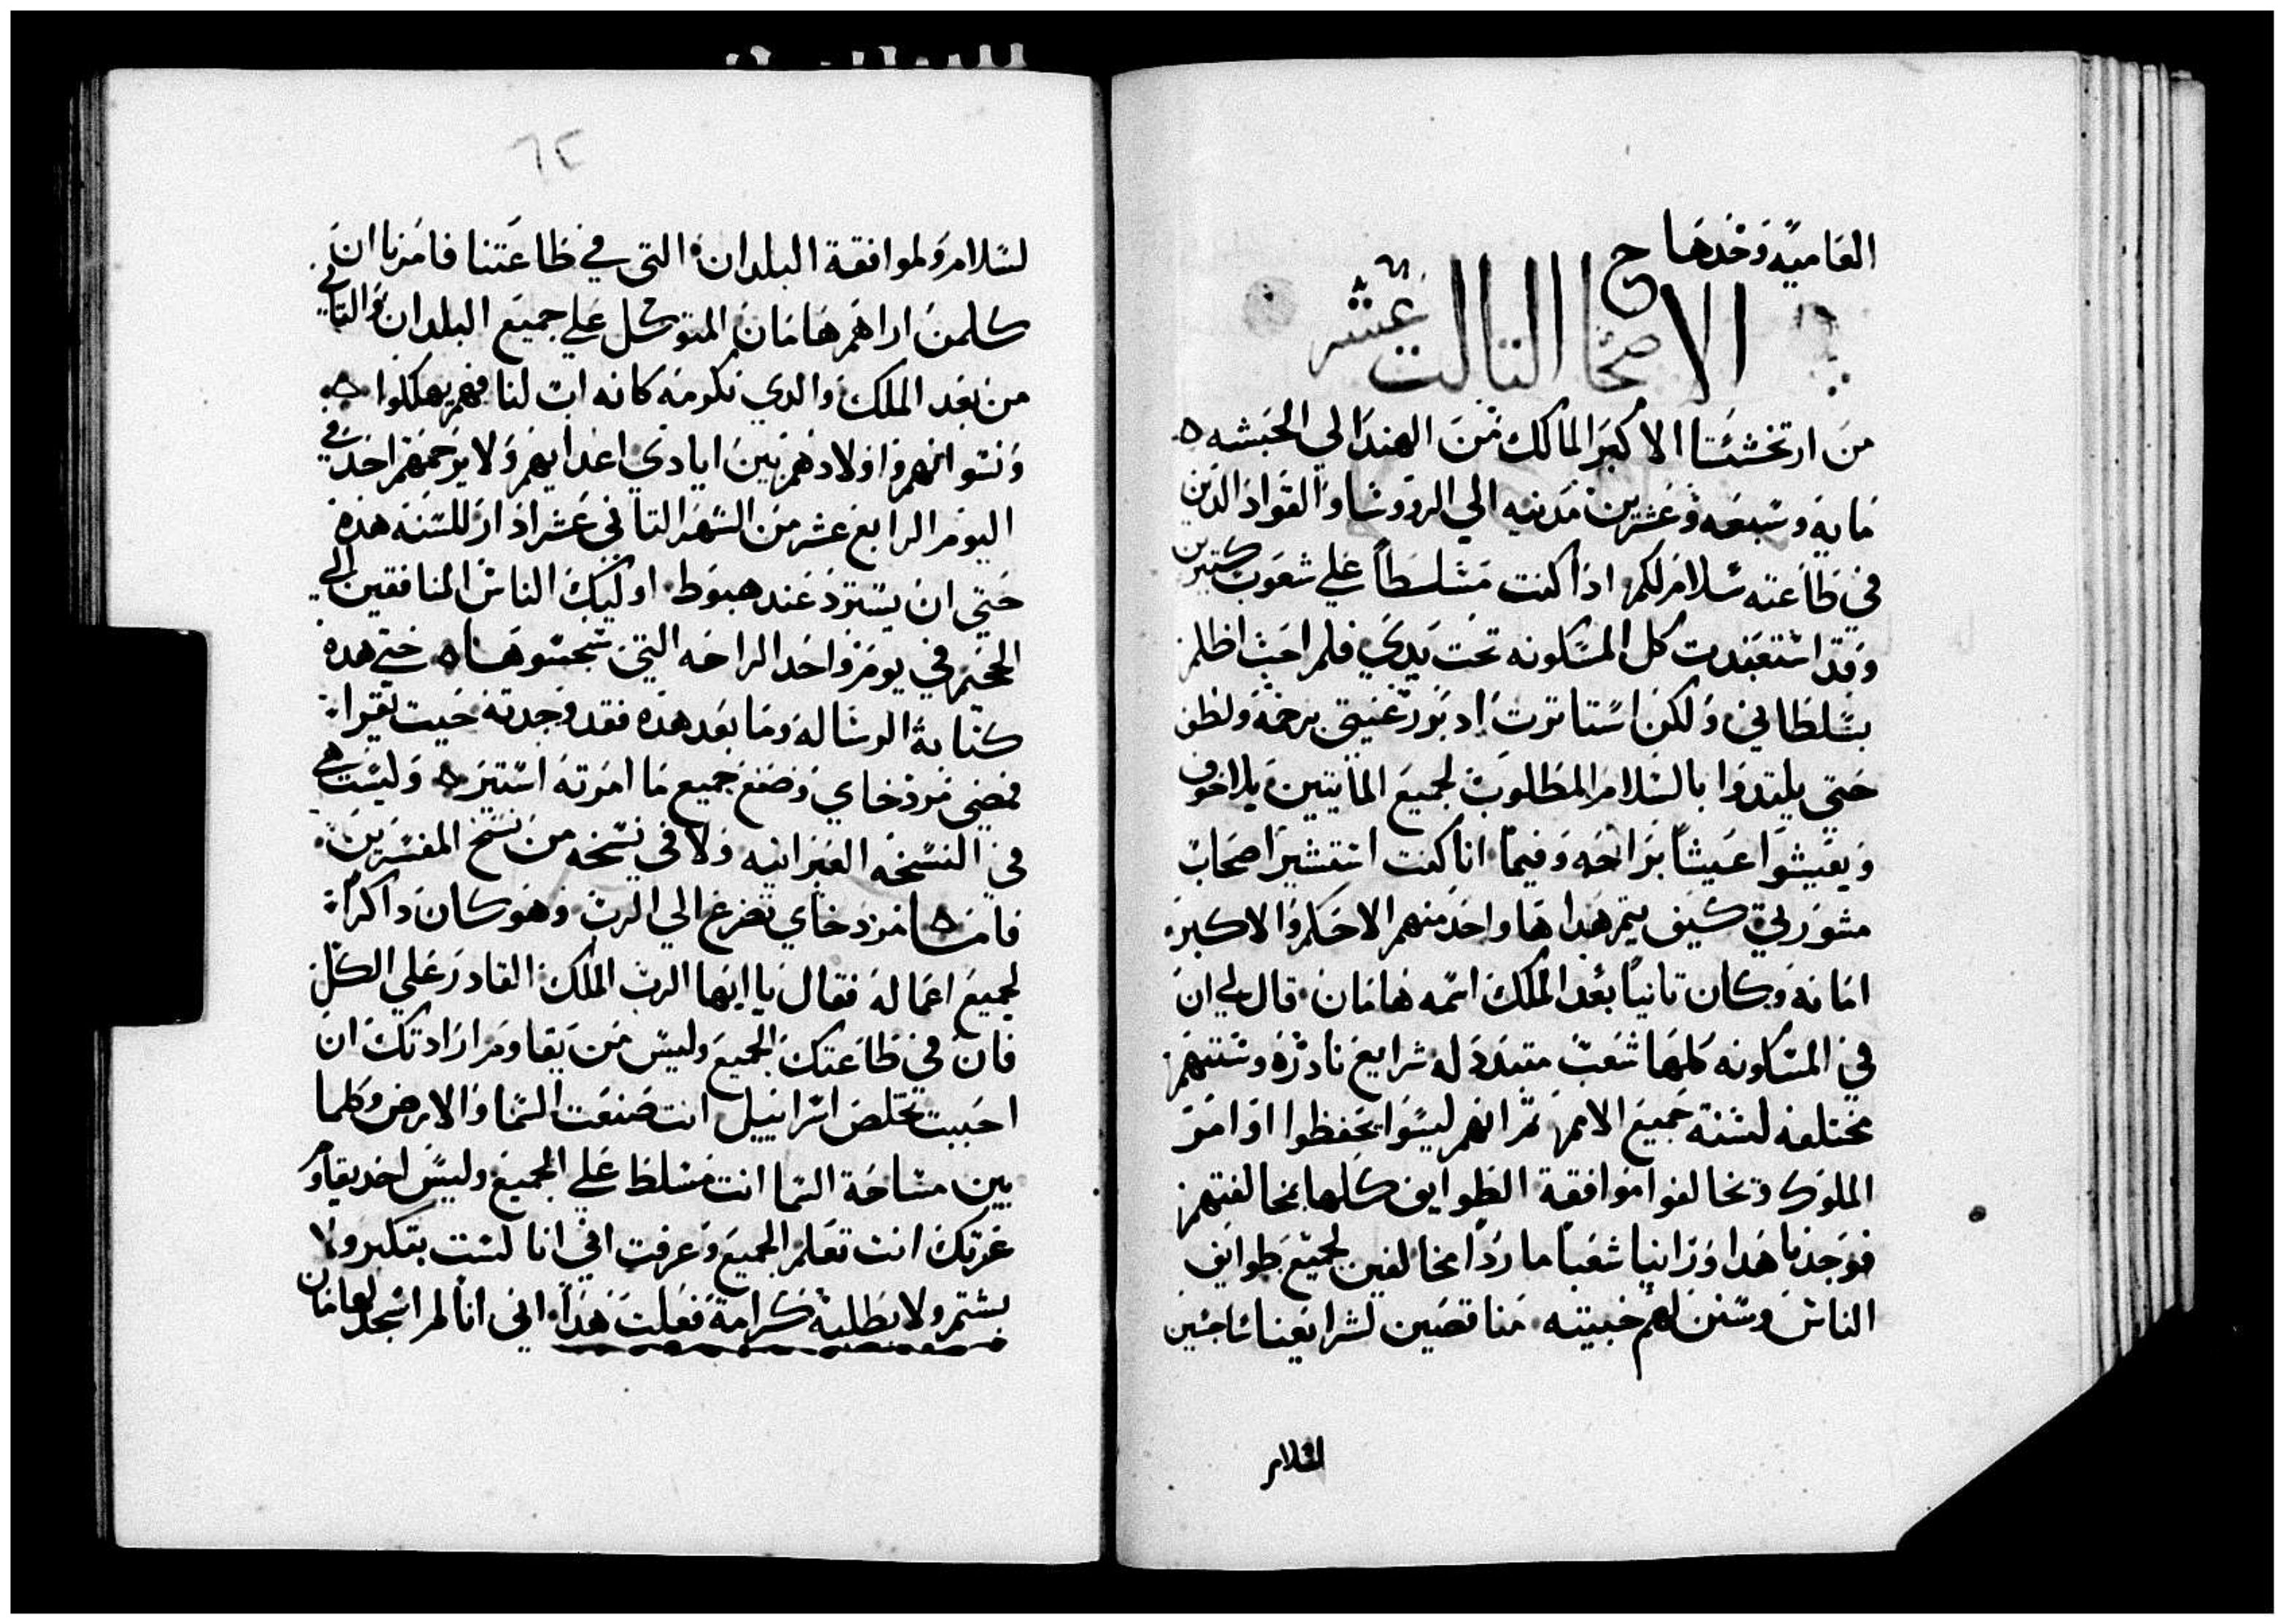 العاميه وحدها ح
الاصحاح التالت عشر
من ارتخششتا الاكبر المالك من الهند الي الحبشه ه
مايه وسبعه وعشرين مدنيه الي الرووسا والقواد الدين
في طاعته سلام لكم اذا كنت مسلسطاً علي شعوب كتيرين
وقد استعبدت كل المسكونه تحت يدي فلم احب اظلم
بسلطاني ولكن استاترت ادبور عيتي برحمة ولطف
حتي يلتدوا بالسلام المطلوب لجميع المايتين بلا خوف
ويعيشوا عيشاً براحه وفيما انا كنت استشير اصحاب
مشورتي كيف يتم هدا ها واحد منهم الاحكم والاكبر
امانه وكان تانياً بعد الملك اسمه هامان قال لي ان
في المسكونه كلها شعب متبدد له شرايع نادره وسننهم
مختلفه لسنة جميع الامم ثم انهم ليسوا يحفظوا اوامر
الملوك وتخالفوا موافقة الطوايف كلها بمخالفتهم
فوجدنا هدا وزانيا شعباً مارداً مخالفين لجميع طوايف
الناس وسنن لهم خبيته مناقضين لشرايعنا ناجسين
لسلام
٦٢
لسلام ولموافقة البلدان التي في طاعتنا فامرنا ان
كلمن اراهم هامان المتوكل علي جميع البلدان والتاني
من بعد الملك والدي نكرمه كانه اب لنا فهم يهلكوا ه
ونسوانهم واولادهم بين ايادي اعدايهم ولا يرحمهم احد في
اليوم الرابع عشر من الشهر التاني عشر اذار للسنه هذه
حتي ان يسترد عند هبوط اوليك الناس المنافقين الي
الجحيم في يوم واحد الراحه التي سجسوها ه حتي هده
كتابة الرساله وما بعد هذه فقد وجدته حيت تقرا
فمضي مردخاي وصنع جميع ما امرته استير ه وليست هي
في النسخه العبرانيه ولا في نسخه من نسخ المفسرين
فامسا مردخاي تضرع الي الرب وهو كان داكراً
لجميع اعماله فقال يا ايها الرب الملك القادر علي الكل
فان في طاعتك الجميع وليس من يقاوم ارادتك ان
احببت تخلص اسراييل انت صنعت السما والارض وكلما
بين مساحة السما انت مسلط علي الجميع وليس احد يقاوم
عزتك انت تعلم الجميع وعرفت اني انا لست بتكبر ولا
بشتم ولا بطلبة كرامة فعلت هذا اني انا لم اسجد لهامان